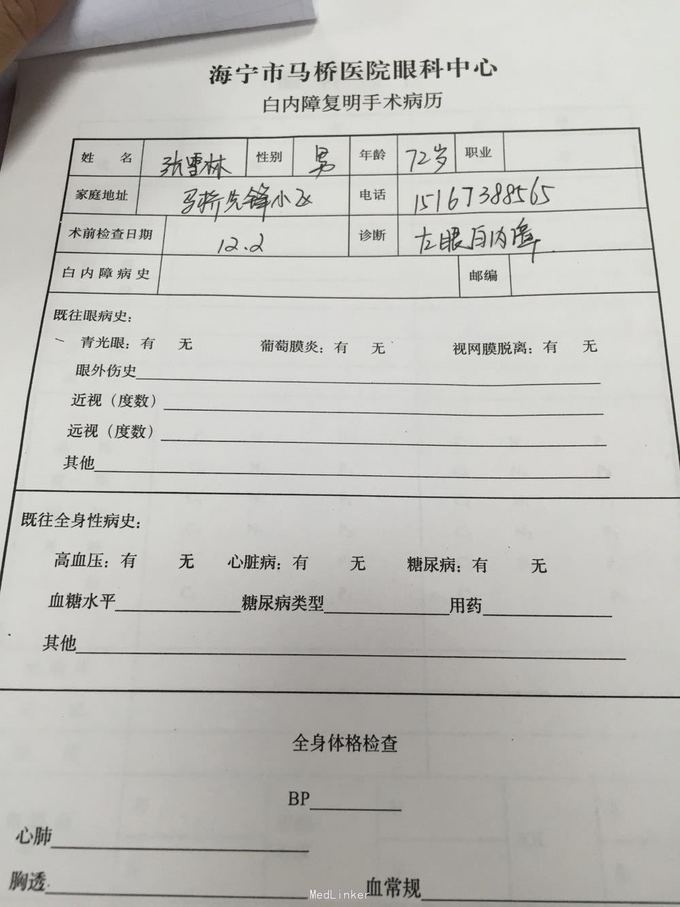 海宁市马桥医院眼科中心
白内障复明手术病历
姓 名 张雪林 性别 男 年龄 72岁 职业
家庭地址 马桥先锋小区 电话 15167388565
术前检查日期 12.2 诊断 左眼白内障
白内障病史 邮编
既往眼病史:
青光眼:有 无 葡萄膜炎:有 无 视网膜脱离:有 无
眼外伤史
近视(度数)
远视(度数)
其他
既往全身性病史:
高血压:有 无 心脏病:有 无 糖尿病:有 无
血糖水平 糖尿病类型 用药
其他
全身体格检查
BP
心肺
胸透 血常规
MedLinker